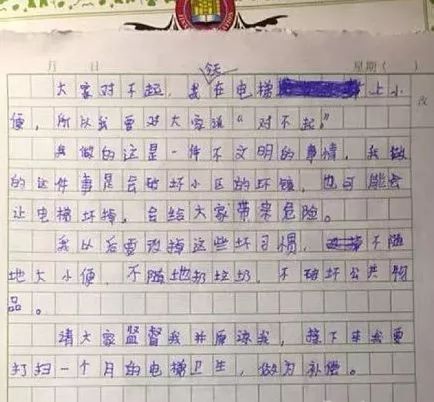 月 日 星期( )
大家对不起，我在电梯上小
便，所以我要对大家说“对不起”
我做的这是一件不文明的事情，我做
的这件事是会破坏小区的环境，也可能会
让电梯坏掉，会给大家带来危险。
我以后要改掉这些坏习惯，不随
地大小便，不随地扔垃圾，不破坏公共物
品。
请大家监督我并原谅我，接下来我要
打扫一个月的电梯卫生，做为补偿。